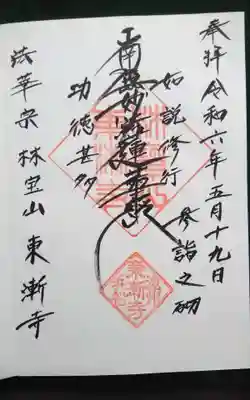 奉拝 令和六年五月十九日
参詣之砌
如説修行
南無妙法蓮華経
功徳甚多
法華宗 林宝山 東漸寺
東漸寺